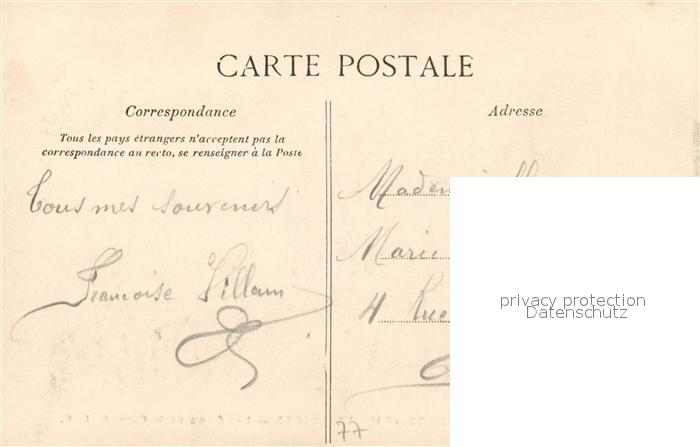 CARTE POSTALE
Correspondance
Tous les pays étrangers n'acceptent pas la
correspondance au recto, se renseigner à la Poste
Tous mes souvenirs
Francoise Villain
Adresse
Marie
4 Rue
privacy protection
Datenschutz
77